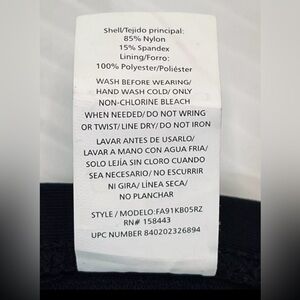 Shell/Tejido principal:
85% Nylon
15% Spandex
Lining/Forro:
100% Polyester/Poliéster
WASH BEFORE WEARING/
HAND WASH COLD/ ONLY
NON-CHLORINE BLEACH
WHEN NEEDED/ DO NOT WRING
OR TWIST/ LINE DRY/ DO NOT IRON
LAVAR ANTES DE USARLO/
LAVAR A MANO CON AGUA FRIA/
SOLO LEJÍA SIN CLORO CUANDO
SEA NECESARIO/ NO ESCURRIR
NI GIRA/ LÍNEA SECA/
NO PLANCHAR
STYLE / MODELO:FA91KB05RZ
RN# 158443
UPC NUMBER 840202326894